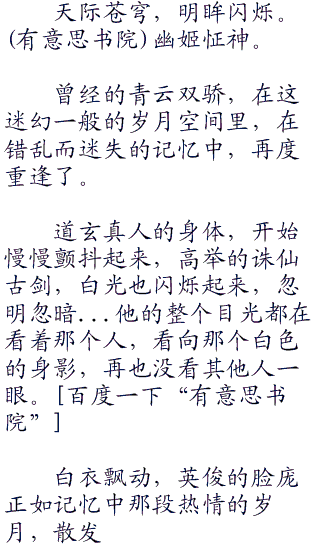 天际苍穹，明眸闪烁。
(有意思书院)幽姬怔神。
曾经的青云双骄，在这
迷幻一般的岁月空间里，在
错乱而迷失的记忆中，再度
重逢了。
道玄真人的身体，开始
慢慢颤抖起来，高举的诛仙
古剑，白光也闪烁起来，忽
明忽暗...他的整个目光都在
看着那个人，看向那个白色
的身影，再也没看其他人一
眼。[百度一下“有意思书
院”]
白衣飘动，英俊的脸庞
正如记忆中那段热情的岁
月，散发